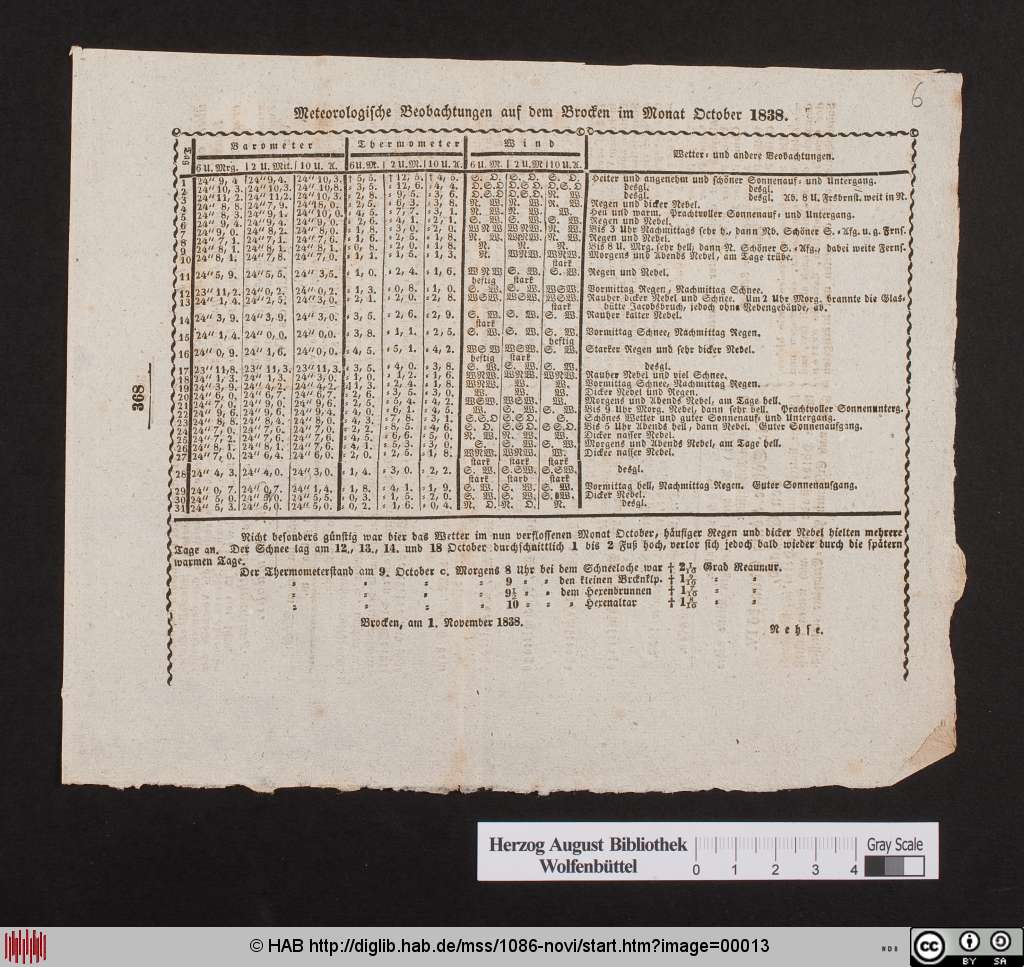 6
Meteorologische Beobachtungen auf dem Brocken im Monat October 1838.
Tag Barometer Thermometer Wind Wetter= und andere Beobachtungen.
6 U. Mrg. 2 U. Mit. 10 U. A. 6 U. M. 2 U. M. 10 U. A. 6 U. M. 2 U. M 10 U. A.
1 24" 9, 4 24" 9, 4. 24" 10, 3. † 5, 5. † 12, 5. † 4, 5. S. O. S. O. S. O. Heiter und angenehm und schöner Sonnenauf= und Untergang.
2 24" 10, 3. 24" 10, 3. 24" 10, 8. = 3, 5. = 12, 6. = 4, 4. O.S.O O.S.O. O.S.O desgl. desgl.
3 24" 11, 2. 24" 11, 2. 24" 10, 3. = 2, 8. = 9, 5. = 3, 6. O.S.O. O.S.O. N. W. desgl. desgl. Ab. 8 U. Frsbrnst. weit in N.
4 24" 8, 8. 24" 7, 9. = 2, 5. = 6, 3. = 3, 8. N. W. N. W. N. W. Regen und dicker Nebel.
5 24" 8, 3. 24" 9, 1. 24" 10, 0. = 4, 5. = 7, 7. = 3, 1. N. W. N. W. W. Heu und warm. Prachtvoller Sonnenauf= und Untergang.
6 24" 9, 4. 24" 9, 4. 24" 9, 0. = 2, 6. = 4, 1. = 2, 1. S. W. S. W. S. W. Regen und Nebel.
7 24" 9, 0. 24" 8, 2. 24" 8, 0. = 1, 8. = 3, 0. = 2, 0. WNW WNW. N. W. Bis 3 Uhr Nachmittags sehr h., dann Nb. Schöner S.=Afg. u. g. Frns.
8 24" 7, 1. 24" 7, 1. 24" 7, 6. = 1, 6. = 2, 5. = 1, 8. N. W. WNW. N. W. Regen und Nebel.
9 24" 8, 1. 24" 8, 1. 24" 8, 1. = 0, 8. = 2, 0. = 1, 8. N. N. N. Bis 8 U. Mrg. sehr hell, dann N. Schöner S.=Afg., dabei weite Ferns.
10 24" 8, 1. 24" 7, 8. 24" 7, 0. = 1, 1. = 1, 5. = 1, 3. N. WNW. WNW. Morgens und Abends Nebel, am Tage trübe.
stark
11 24" 5, 9. 24" 5, 5. 24" 3, 5. = 1, 0. = 2, 4. = 1, 6. WNW S. W. S. W. Regen und Nebel.
heftig stark
12 23" 11, 2. 24" 0, 2. 24" 0, 2. = 1, 3. = 0, 8. = 1, 0. S. W. S. W. WSW. Vormittag Regen, Nachmittag Schnee.
13 24" 1, 4. 24" 2, 5. 24" 3, 0. = 2, 1. = 2, 0. = 2, 8. WSW. WSW. WSW. Rauher dicker Nebel und Schnee. Um 2 Uhr Morg. brannte die Glas=
stark hütte Jacobsbruch, jedoch ohne Nebengebäude, ab.
14 24" 3, 9. 24" 3, 9. 24" 3, 0. = 3, 5. = 2, 6. = 2, 9. S. W. S. W. S. W. Rauher kalter Nebel.
stark
15 24" 1, 4. 24" 0, 0. 24" 0, 0. = 3, 8. = 1, 1. = 2, 5. S. W. S. W. S. W. Vormittag Schnee, Nachmittag Regen.
heftig
16 24" 0, 9. 24" 1, 6. 24" 0, 0. = 4, 5. = 5, 1. = 4, 2. WSW WSW S. W. Starker Regen und sehr dicker Nebel.
heftig stark
17 23" 11, 8. 23" 11, 3. 23" 11, 3. = 3, 5. = 4, 0. = 3, 8. S. W. S. W. S. W. desgl.
18 24" 1, 3. 24" 1, 3. 24" 3, 0. = 1, 0. = 1, 2. = 1, 6. WNW. WNW. WNW. Rauher Nebel und viel Schnee.
19 24" 3, 9. 24" 4, 2. 24" 4, 2. = 1, 3. = 2, 4. = 1, 8. WNW. W. W. Vormittag Schnee, Nachmittag Regen.
20 24" 6, 0. 24" 6, 7. 24" 6, 7. = 2, 6. = 3, 5. = 3, 0. W. W. W. Dicker Nebel und Regen.
21 24" 7, 0. 24" 9, 0. 24" 9, 6. = 2, 5. = 5, 4. = 4, 2. WSW. WSW. W. Morgens und Abends Nebel, am Tage hell.
22 24" 9, 6. 24" 9, 6. 24" 9, 4. = 4, 0. = 6, 1. = 4, 5. W. S. W. S. W. Bis 9 Uhr Morg. Nebel, dann sehr hell. Prachtvoller Sonnenunterg.
23 24" 8, 8. 24" 8, 4. 24" 8, 0. = 4, 3. = 7, 8. = 3, 1. S.S.O S.S.O. S. Schönes Wetter und guter Sonnenauf= und Untergang.
24 24" 7, 0. 24" 7, 0. 24" 7, 0. = 2, 2. = 8, 5. = 4, 6. S. O. S.S.O. SSO. Bis 5 Uhr Abends hell, dann Nebel. Guter Sonnenaufgang.
25 24" 7, 2. 24" 7, 6. 24" 7, 6. = 4, 5. = 6, 6. = 5, 0. N. W. N. W. W. Dicker nasser Nebel.
26 24" 8, 1. 24" 8, 1. 24" 8, 1. = 4, 1. = 5, 3. = 3, 0. S. S. W. S. W. Morgens und Abends Nebel, am Tage hell.
27 24" 7, 0. 24" 6, 4. 24" 6, 0. = 2, 0. = 2, 5. = 1, 8. WNW. WNW. W. Dicker nasser Nebel.
stark stark stark
28 24" 4, 3. 24" 4, 0. 24" 3, 0. = 1, 4. = 3, 0. = 2, 2. S. W. S.SW. S.SW. desgl.
stark starb stark
29 24" 0, 7. 24" 0, 7. 24" 1, 4. = 1, 8. = 4, 1. = 1, 9. S. W. S. W. S. W. Vormittag hell, Nachmittag Regen. Guter Sonnenaufgang.
30 24" 5, 0. 24" 5, 0. 24" 5, 5. = 0, 3. = 1, 5. = 2, 0. S. W. S. W. S. W. Dicker Nebel.
31 24" 5, 3. 24" 5, 0. 24" 5, 0. = 0, 2. = 1, 6. = 0, 4. N. O. N. O. N. desgl.
368
Nicht besonders günstig war hier das Wetter im nun verflossenen Monat October, häufiger Regen und dicker Nebel hielten mehrere
Tage an. Der Schnee lag am 12., 13., 14. und 18 October durchschnittlich 1 bis 2 Fuß hoch, verlor sich jedoch bald wieder durch die spätern
warmen Tage.
Der Thermometerstand am 9. October c. Morgens 8 Uhr bei dem Schneeloche war † 2 1/10 Grad Reaumur.
= = = = 9 = = den kleinen Brcknklp. † 1 9/10 = =
= = = = 9½ = = dem Hexenbrunnen † 1 = =
= = = = 10 = = = Hexenaltar † 1 = =
Brocken, am 1. November 1838.
Nehse.
Herzog August Bibliothek
Wolfenbüttel
0 1 2 3 4
Gray Scale
© HAB http://diglib.hab.de/mss/1086-novi/start.htm?image=00013
WDB
cc BY SA